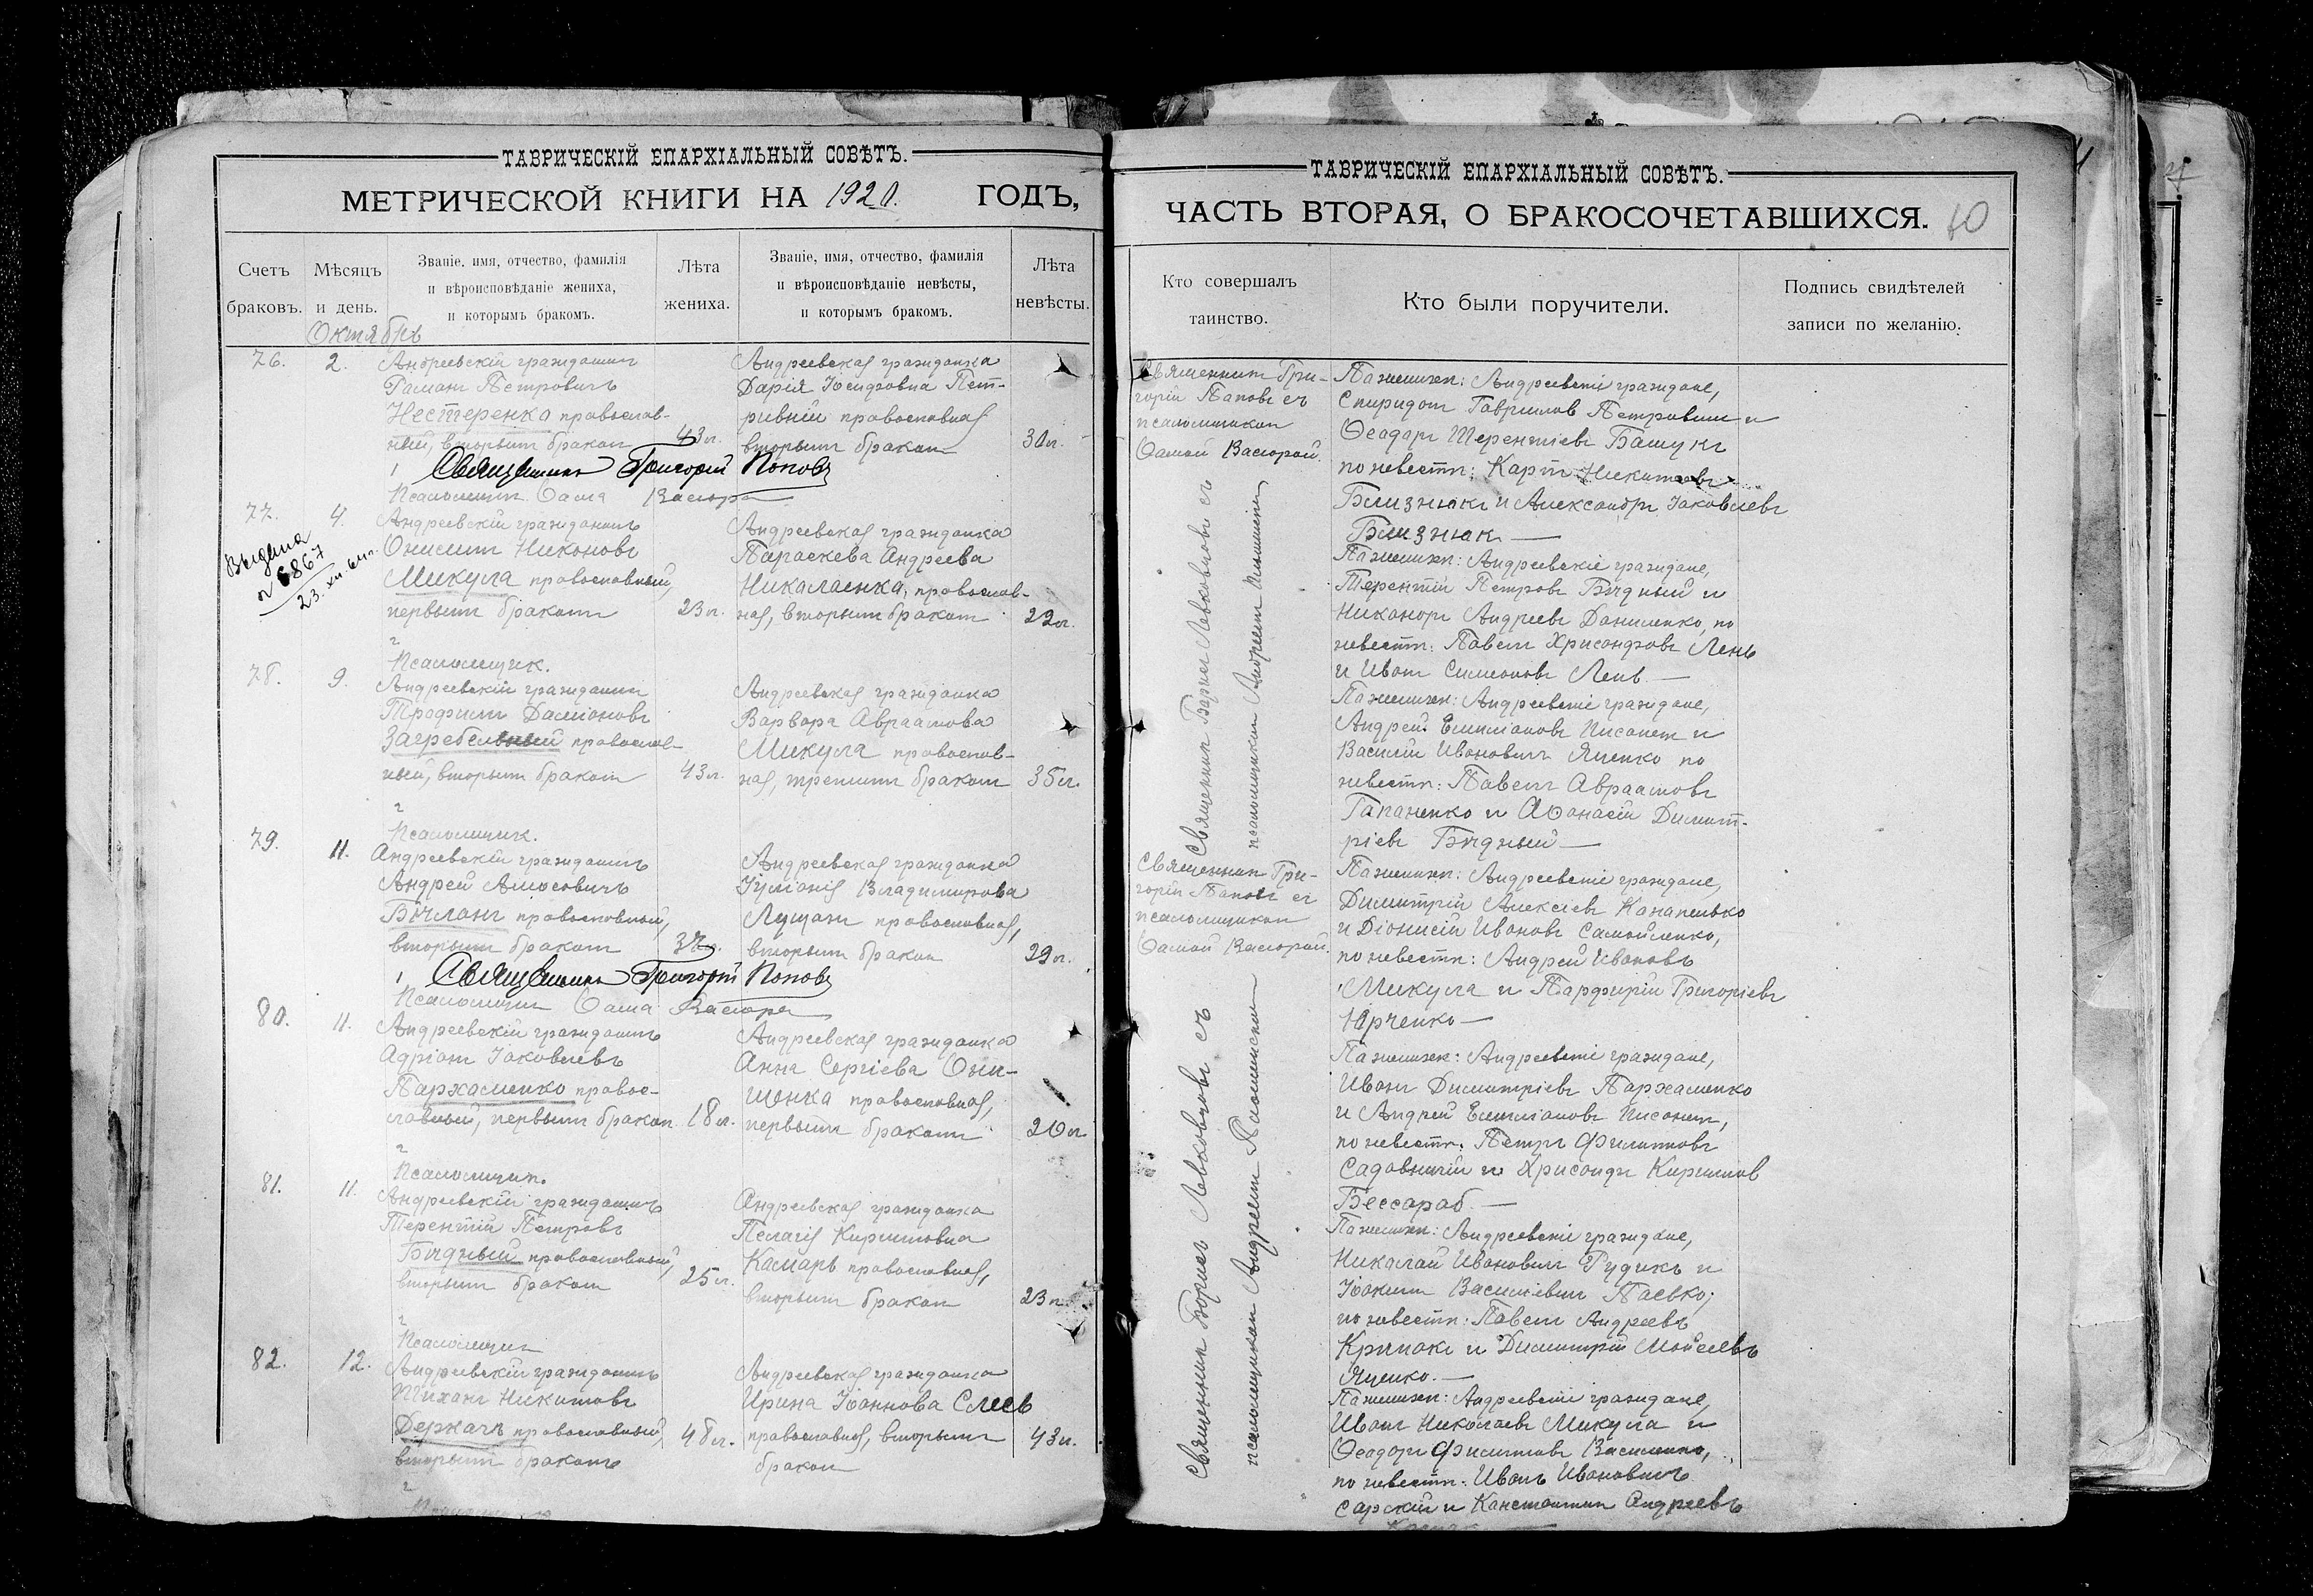 ТАВРИЧЕСКІЙ ЕПАРХІАЛЬНЫЙ СОВѢТЪ.
МЕТРИЧЕСКОЙ КНИГИ НА 1920. ГОДЪ,
Счетъ браковъ.
Мѣсяцъ и день.
Званіе, имя, отчество, фамилія
и вѣроисповѣданіе жениха,
и которымъ бракомъ.
Лѣта жениха.
Званіе, имя, отчество, фамилія
и вѣроисповѣданіе невѣсты,
и которымъ бракомъ.
Лѣта невѣсты.
Октябрь
76. 2.
Андреевскій гражданин
Роман Петровичъ
Нестеренко православ-
ный, вторым браком 43 л.
Андреевская гражданка
Дарія
вторым браком 30 л.
Священникъ Григорій Поповъ
Псаломщик Сама Васюра
77. 4.
Выдана
23. XII.
Андреевскій гражданинъ
Онисим Никоновъ
Микула православный,
первым браком 23 л.
Андреевская гражданка
Параскева Андреева
Николаенко, православ-
ная, вторым браком 22 л.
Псаломщик.
78. 9.
Андреевскій гражданин
Трофим Даміоновъ
Загребельный православ-
ный, вторым браком 43 л.
Андреевская гражданка
Варвара Авраамова
Микула православ-
ная, третьим браком 35 л.
Псаломщик.
79. 11.
Андреевскій гражданинъ
Андрей Амосовичъ
православный,
вторым браком 37 л.
Андреевская гражданка
Іуліанія Владимирова
Лущан православная,
вторым браком 29 л.
Священникъ Григорій Поповъ
Псаломщик Сама Васюра
80. 11.
Андреевскій гражданинъ
Адріан Іаковлевъ
Пархоменко правос-
лавный, первым браком 18 л.
Андреевская гражданка
Анна Сергіева Они-
щенко православная,
первым браком 20 л.
Псаломщик.
81. 11.
Андреевскій гражданинъ
Терентій Петровъ
Бѣдный православный,
вторым браком 25 л.
Андреевская гражданка
Пелагія Кирилловна
Комарь православная,
вторым браком 23 л.
Псаломщик
82. 12.
Андреевскій гражданинъ
Тихон Никитовъ
Деркачъ православный,
вторым бракомъ 48 л.
Андреевская гражданка
Ирина Іоаннова Слесь
православная, вторым 43 л.
браком
ТАВРИЧЕСКІЙ ЕПАРХІАЛЬНЫЙ СОВѢТЪ.
ЧАСТЬ ВТОРАЯ, О БРАКОСОЧЕТАВШИХСЯ.
Кто совершалъ таинство.
Кто были поручители.
Подпись свидѣтелей записи по желанію.
Священник Гри-
горій Попов съ
псаломщиком
Самой Васюрой.
По женихѣ: Андреевскіе граждане,
Спиридон Гаврилов Петровин и
Ѳеодор Терентіевъ Башук
по невестѣ: Карп Никитовъ
Близнюкъ и Александр Іаковлевъ
Близнюк
По женихѣ: Андреевскіе граждане,
Терентій Петровъ Бѣдный и
Никанор Андреевъ Даниленко, по
невестѣ: Павел Хрисанфовъ Лень
и Иван Симеоновъ Лень.
По женихѣ: Андреевскіе граждане,
Андрей Емиліановъ Писанец и
Василій Ивановичъ Яценко по
невестѣ: Павел Авраамовъ
Гапаненко и Аѳанасій Димит-
ріевъ Бѣдный
Священник Гри-
горій Попов съ
псаломщиком
Самой Васюрой.
По женихѣ: Андреевскіе граждане,
Димитрій Алексіевъ Канапелько
и Діонисій Ивановъ Самойленко,
по невестѣ: Андрей Ивановъ
Микула и Парфирій Григоріевъ
Юрченко
По женихѣ: Андреевскіе граждане,
Иван Димитріевъ Пархоменко
и Андрей Емиліановъ Писанец,
по невестѣ: Петр Филипповъ
Садовничій и Хрисанф Кириллов
Бессараб.
По женихѣ: Андреевскіе граждане,
Николай Ивановичъ Рудикъ и
Іоаким Василіевич Паевко;
по невестѣ: Павел Андреевъ
и Димитрій Моисеевъ
Яценко.
По женихѣ: Андреевскіе граждане,
Иван Николаевъ Микула и
Ѳеодор Филипповъ Василенко,
по невестѣ: Иванъ Ивановичъ
Сарскій и Константин Андреевъ